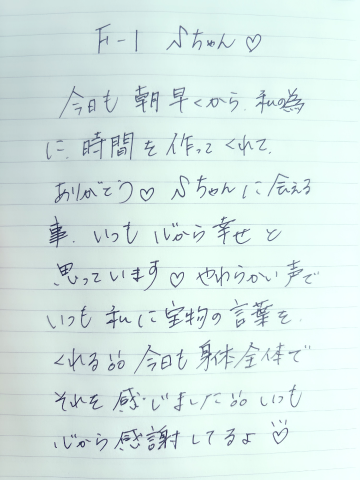 F-1 Sちゃん♡
今日も朝早くから、私の為
に、時間を作ってくれて、
ありがとう♡ Sちゃんに会える
事、いつも心から幸せと
思っています♡やわらかい声で
いつも私に宝物の言葉を、
くれる 今日も身体全体で
それを感じました いつも
心から感謝してるよ♡